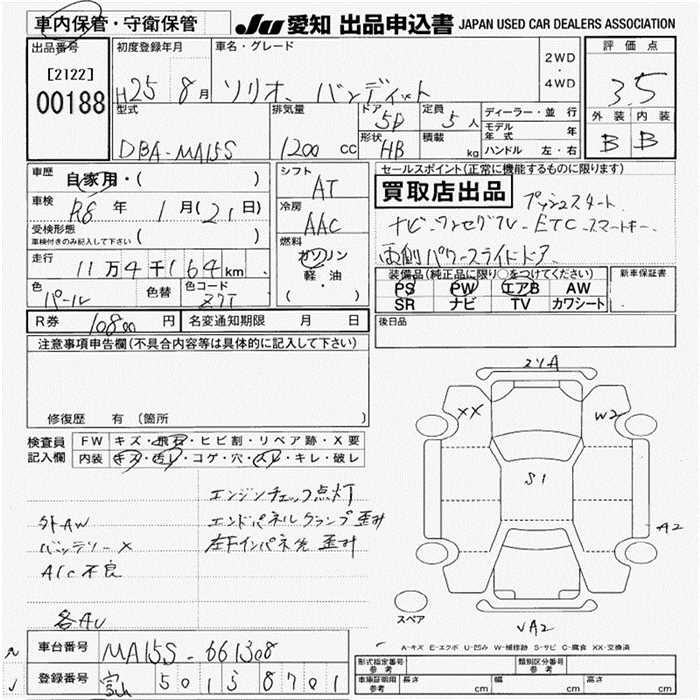 車内保管・守衛保管
JU 愛知 出品申込書 JAPAN USED CAR DEALERS ASSOCIATION
出品番号
[2122]
00188
初度登録年月
H25 8月
車名・グレード
ソリオ バンディット
2WD
・
4WD
評価点
3.5
外装 内装
B B
型式
DBA-MA15S
排気量
1200 cc
ドア
5D
定員
5人
形状
HB
積載
kg
ディーラー・並行
モデル年式 年
ハンドル 左・右
車歴
自家用・( )
車検
R8年 1月(21日)
受検形態
車検付きのみ記入して下さい ( )
走行
11万4千164km
色
パール
色替
色コード
Z7T
シフト
AT
冷房
AAC
燃料
ガソリン
軽・油
( )
セールスポイント(正常に機能するものに限ります)
買取店出品 プッシュスタート
ナビ-ワンセグTV-ETC-スマートキー
両側パワースライドドア
装備品(純正品に限り○をつけてください)
PS PW エアB AW
SR ナビ TV カワシート
新車保証書
R券 10800円
名変通知期限 月 日
後日品
注意事項申告欄(不具合内容等は具体的に記入して下さい)
修復歴 有 〔箇所 〕
検査員記入欄
FW キズ・飛石・ヒビ割・リペア跡・X要
内装 キズ・汚レ・コゲ・穴・スレ・キレ・破レ
エンジンチェック点灯
外AW エンドパネルクランプ歪み
バッテリーX 左FインパネC 歪み
A/C不良
各AU
2YA
XX
W2
S1
A2
スペア
VA2
A-キズ E-エクボ U-凹み W-補修跡 S-サビ C-腐食 XX-交換済
車台番号 MA15S-661308
登録番号 501 8701
形式指定番号 参考
類別区分番号 参考
車庫証明用 参考
長さ cm
幅 cm
高さ cm